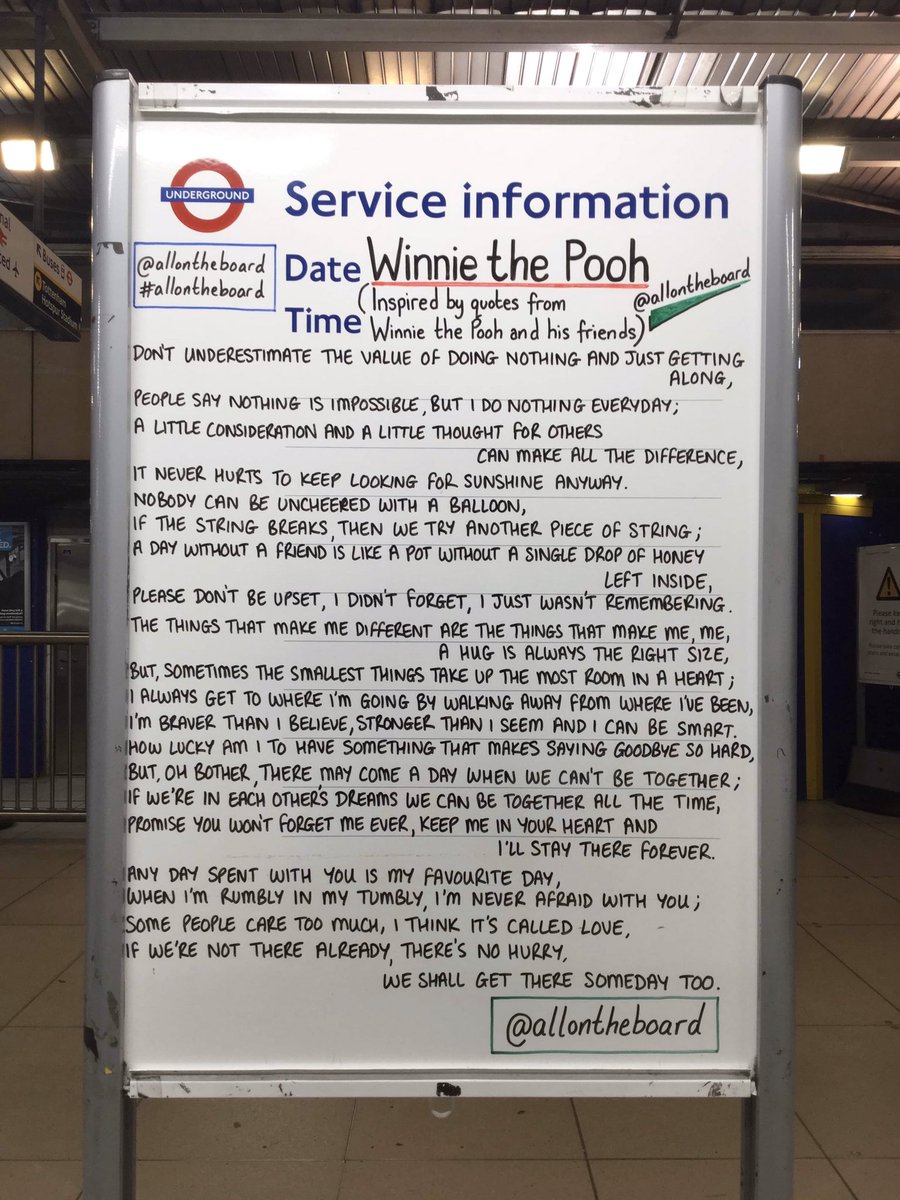 UNDERGROUND
Service information
@allontheboard
#allontheboard
Date Winnie the Pooh
@allontheboard
Time (Inspired by quotes from
Winnie the Pooh and his friends)
DON'T UNDERESTIMATE THE VALUE OF DOING NOTHING AND JUST GETTING
ALONG,
PEOPLE SAY NOTHING IS IMPOSSIBLE, BUT I DO NOTHING EVERYDAY;
A LITTLE CONSIDERATION AND A LITTLE THOUGHT FOR OTHERS
CAN MAKE ALL THE DIFFERENCE,
IT NEVER HURTS TO KEEP LOOKING FOR SUNSHINE ANYWAY.
NOBODY CAN BE UNCHEERED WITH A BALLOON,
IF THE STRING BREAKS, THEN WE TRY ANOTHER PIECE OF STRING;
A DAY WITHOUT A FRIEND IS LIKE A POT WITHOUT A SINGLE DROP OF HONEY
LEFT INSIDE,
PLEASE DON'T BE UPSET, I DIDN'T FORGET, I JUST WASN'T REMEMBERING.
THE THINGS THAT MAKE ME DIFFERENT ARE THE THINGS THAT MAKE ME, ME,
A HUG IS ALWAYS THE RIGHT SIZE,
BUT, SOMETIMES THE SMALLEST THINGS TAKE UP THE MOST ROOM IN A HEART;
I ALWAYS GET TO WHERE I'M GOING BY WALKING AWAY FROM WHERE I'VE BEEN,
I'M BRAVER THAN I BELIEVE, STRONGER THAN I SEEM AND I CAN BE SMART.
HOW LUCKY AM I TO HAVE SOMETHING THAT MAKES SAYING GOODBYE SO HARD,
BUT, OH BOTHER, THERE MAY COME A DAY WHEN WE CAN'T BE TOGETHER;
IF WE'RE IN EACH OTHER'S DREAMS WE CAN BE TOGETHER ALL THE TIME,
PROMISE YOU WON'T FORGET ME EVER, KEEP ME IN YOUR HEART AND
I'LL STAY THERE FOREVER.
ANY DAY SPENT WITH YOU IS MY FAVOURITE DAY,
WHEN I'M RUMBLY IN MY TUMBLY, I'M NEVER AFRAID WITH YOU;
SOME PEOPLE CARE TOO MUCH, I THINK IT'S CALLED LOVE,
IF WE'RE NOT THERE ALREADY, THERE'S NO HURRY,
WE SHALL GET THERE SOMEDAY TOO.
@allontheboard
Buses
Tottenham
Hotspur Stadium